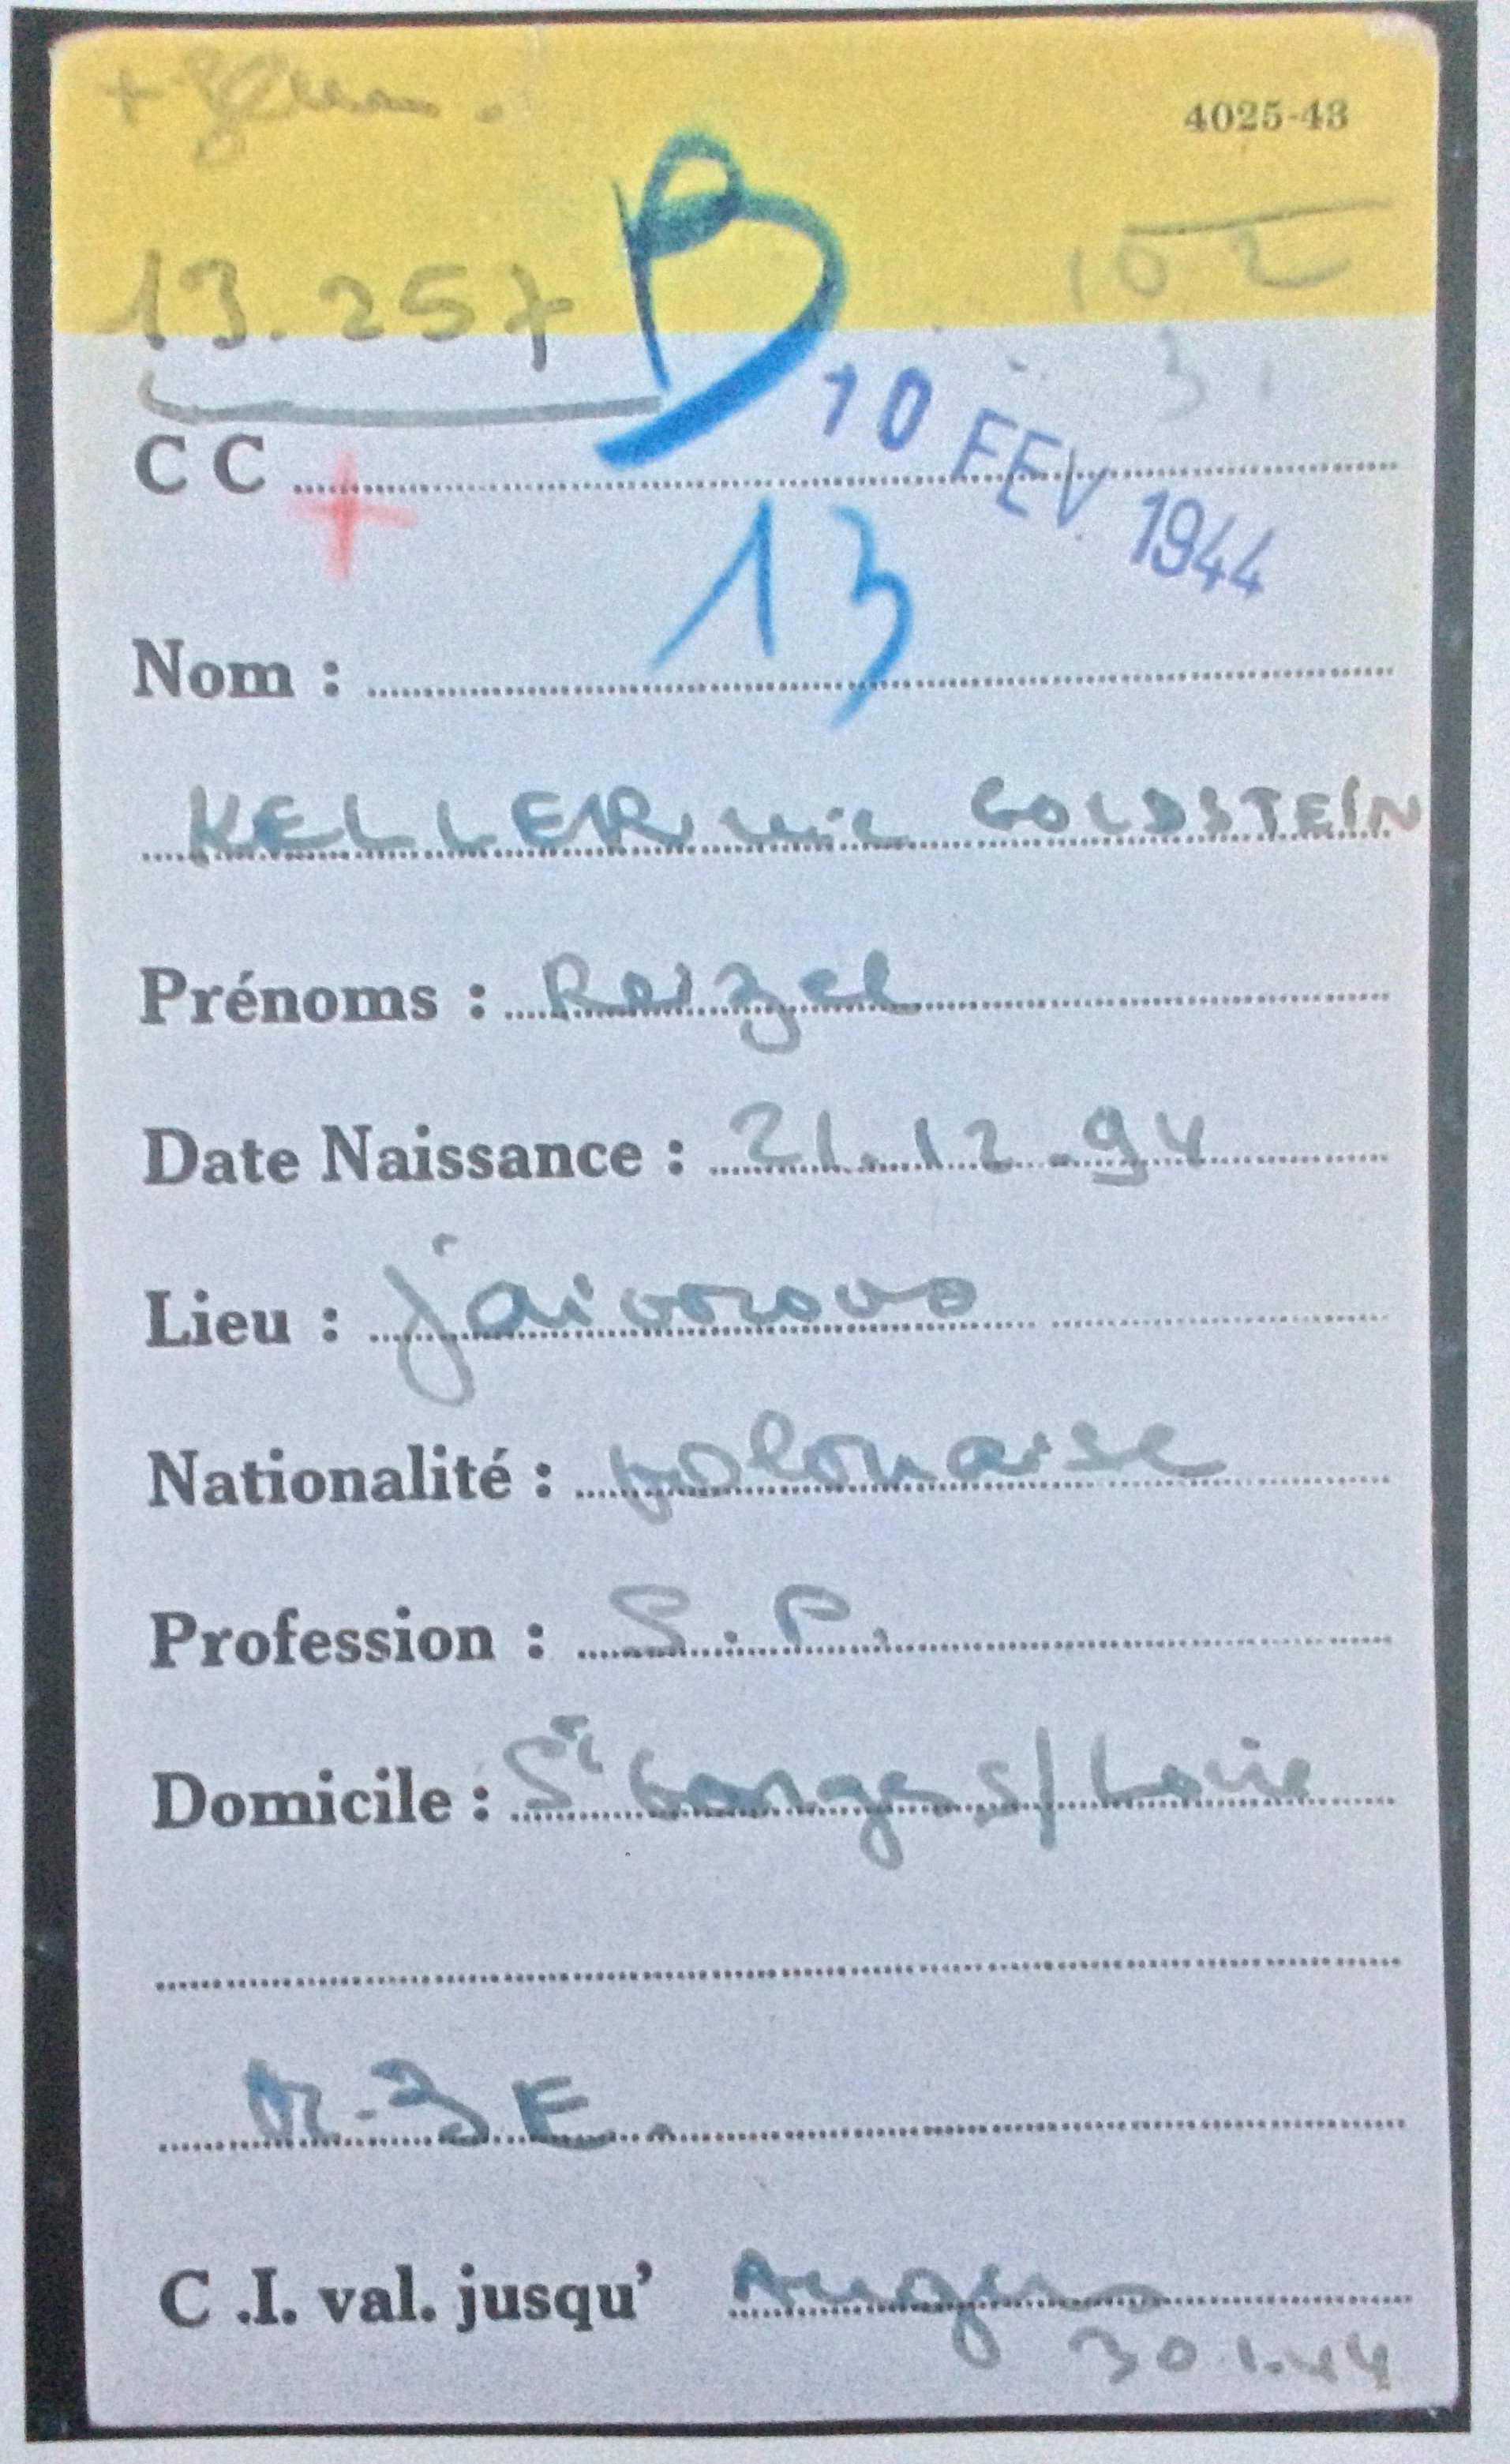 4025-43
13.257 B 102
3.
C C
10 FEV. 1944
13
Nom :
KELLER née GOLDSTEIN
Prénoms : Roizel
Date Naissance : 21.12.94
Lieu : jaivorovo
Nationalité : polonaise
Profession : S.P.
Domicile : St Georges s/Loire
C .I. val. jusqu' Angers
30.1.44